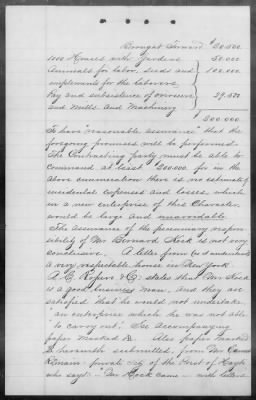 Brought Forward $50.500
1000 Houses with Gardens 50.000
Animals for labor, seeds and
implements for the laborers, 100.000
Pay and subsistence of overseers
and Mills and Machinery
$200.000
To have "reasonable assurance" that the
foregoing promises will be performed
The Contracting party must be able to
Command at least $200.000 for in the
above enumeration there is no estimate of
incidental expenses and losses, which
in a new enterprise of this Character
would be large and unavoidable.
The assurance of the pecuniary respon-
sibility of Mr Bernard Kock is not very
conclusive. A letter from (as I understand)
a very respectable house in New York
states that Mr Kock
is a good business man, and they are
satisfied "that he would not undertake
"an enterprise which he was not able
"to carry out". See accompanying
paper marked Also paper marked
herewith submitted, from Mr
Romain private secy of the Const of Hayti
who says:- "Mr Kock came - with letters